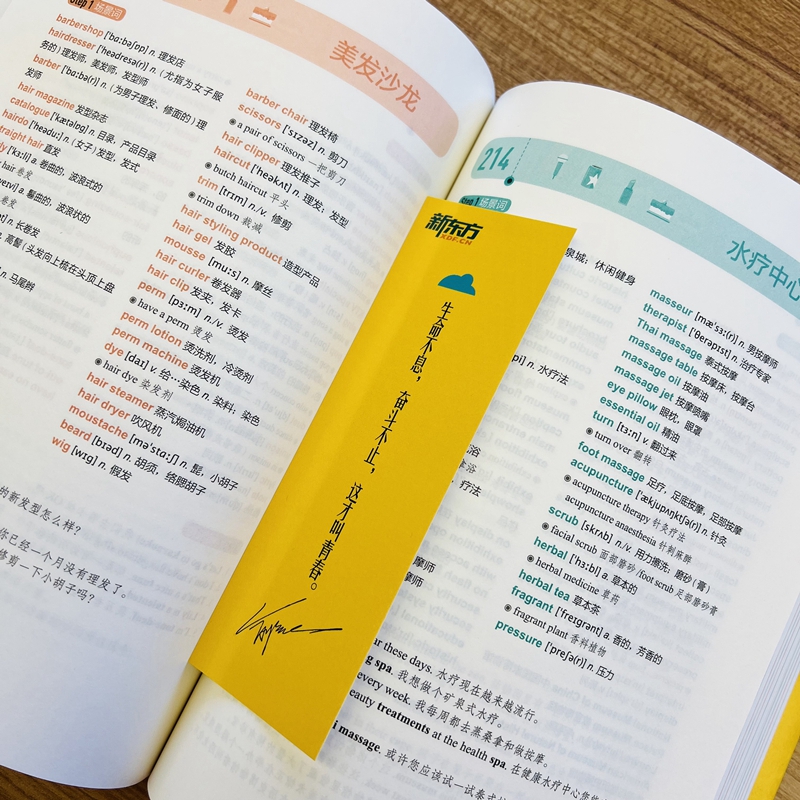 Step 1 场景词
美发沙龙
barbershop ['bɑːbəʃɒp] n. 理发店
hairdresser ['heədresə(r)] n. (尤指为女子服
务的) 理发师,美发师,发型师
barber ['bɑːbə(r)] n. (为男子理发、修面的) 理
发师
hair magazine 发型杂志
catalogue ['kætəlɒɡ] n. 目录,产品目录
hairdo ['heəduː] n. (女子) 发型,发式
straight hair 直发
['kɜːli] a. 卷曲的,波浪式的
hair 卷发
a. 鬈曲的,波浪状的
卷发
n. 长卷发
高髻 (头发向上梳在头顶上盘
n. 马尾辫
barber chair 理发椅
scissors ['sɪzəz] n. 剪刀
◉ a pair of scissors 一把剪刀
hair clipper 理发推子
haircut ['heəkʌt] n. 理发;发型
◉ butch haircut 平头
trim [trɪm] n./v. 修剪
◉ trim down 裁减
hair styling product 造型产品
hair gel 发胶
mousse [muːs] n. 摩丝
hair curler 卷发器
hair clip 发夹,发卡
perm [pɜːm] n./v. 烫发
◉ have a perm 烫发
perm lotion 烫洗剂,冷烫剂
perm machine 烫发机
dye [daɪ] v. 给…染色 n. 染料;染色
◉ hair dye 染发剂
hair steamer 蒸汽焗油机
hair dryer 吹风机
moustache [mə'stɑːʃ] n. 髭,小胡子
beard [bɪəd] n. 胡须,络腮胡子
wig [wɪɡ] n. 假发
的新发型怎么样?
你已经一个月没有理发了。
修剪一下小胡子吗?
新东方
XDF.CN
生命不息,奋斗不止,这才叫青春。
214
水疗中心
Step 1 场景词
泉城;休闲健身
n. 水疗法
浴
疗法
摩师
摩师
masseur [mæ'sɜː(r)] n. 男按摩师
therapist ['θerəpɪst] n. 治疗专家
Thai massage 泰式按摩
massage table 按摩床,按摩台
massage oil 按摩油
massage jet 按摩喷嘴
eye pillow 眼枕,眼罩
essential oil 精油
turn [tɜːn] v. 翻过来
◉ turn over 翻转
foot massage 足疗,足底按摩,足部按摩
acupuncture ['ækjupʌŋktʃə(r)] n. 针灸
◉ acupuncture therapy 针灸疗法
acupuncture anaesthesia 针刺麻醉
scrub [skrʌb] n./v. 用力擦洗;磨砂 (膏)
◉ facial scrub 面部磨砂 /foot scrub 足部磨砂膏
herbal ['hɜːbl] a. 草本的
◉ herbal medicine 草药
herbal tea 草本茶
fragrant ['freɪɡrənt] a. 香的,芳香的
◉ fragrant plant 香料植物
pressure ['preʃə(r)] n. 压力
these days. 水疗现在越来越流行。
spa. 我想做个矿泉式水疗。
every week. 我每周都去蒸桑拿和做按摩。
beauty treatments at the health spa. 在健康水疗中心您
massage. 或许您应该试一试泰式